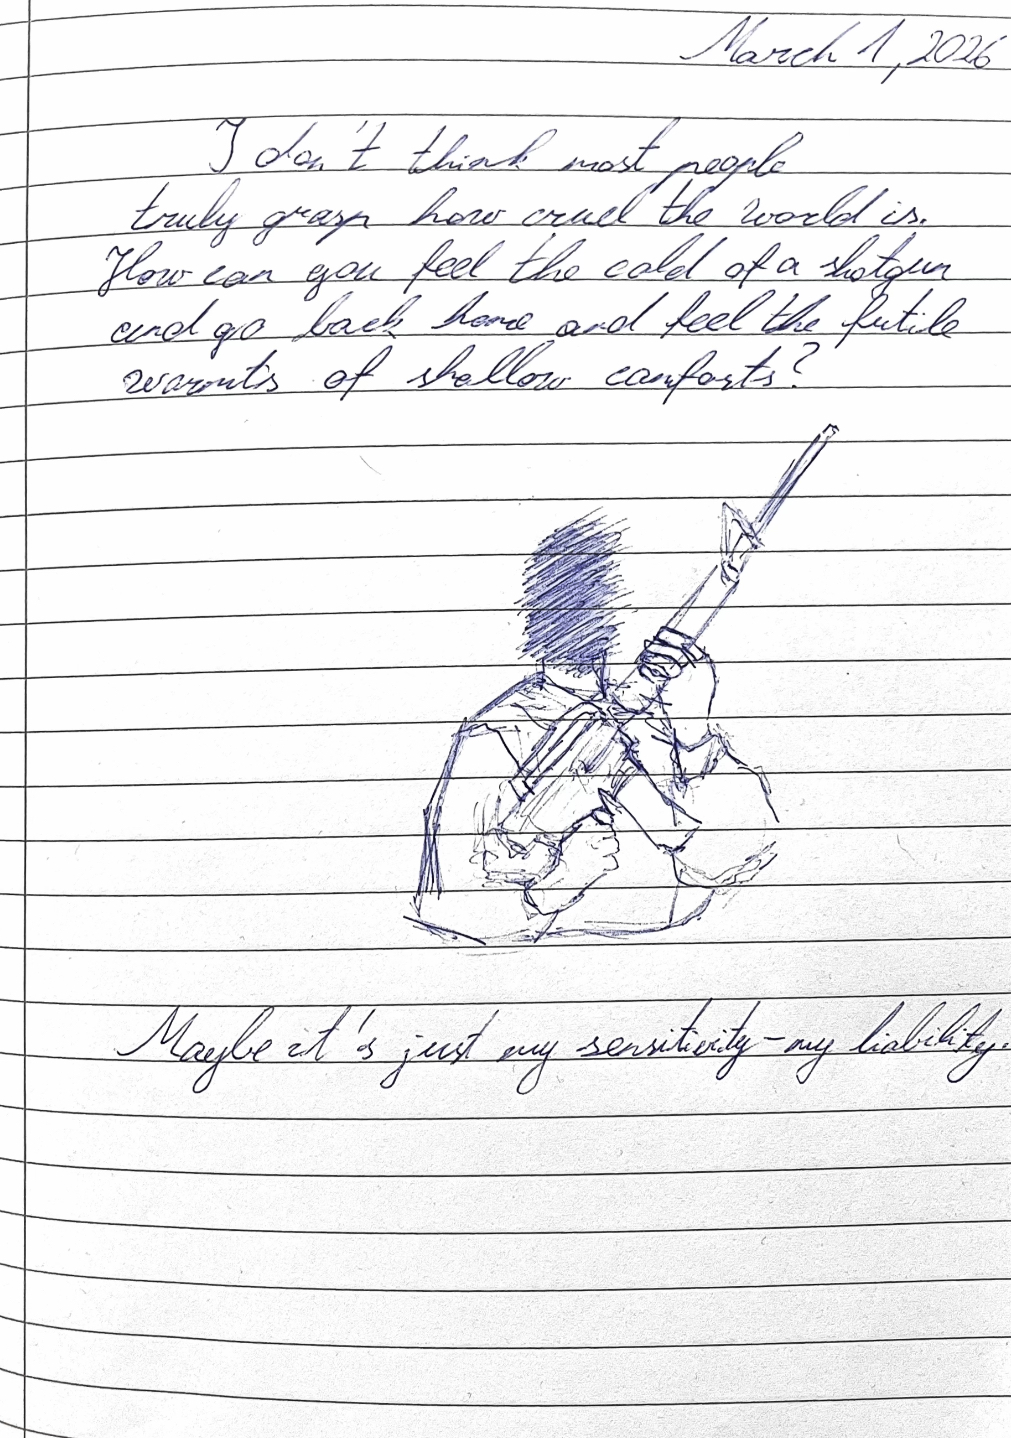 March 1, 2026
I don't think most people
truly grasp how cruel the world is.
How can you feel the cold of a shotgun
and go back home and feel the futile
warmth of shallow comforts?
Maybe it's just my sensitivity - my liability.